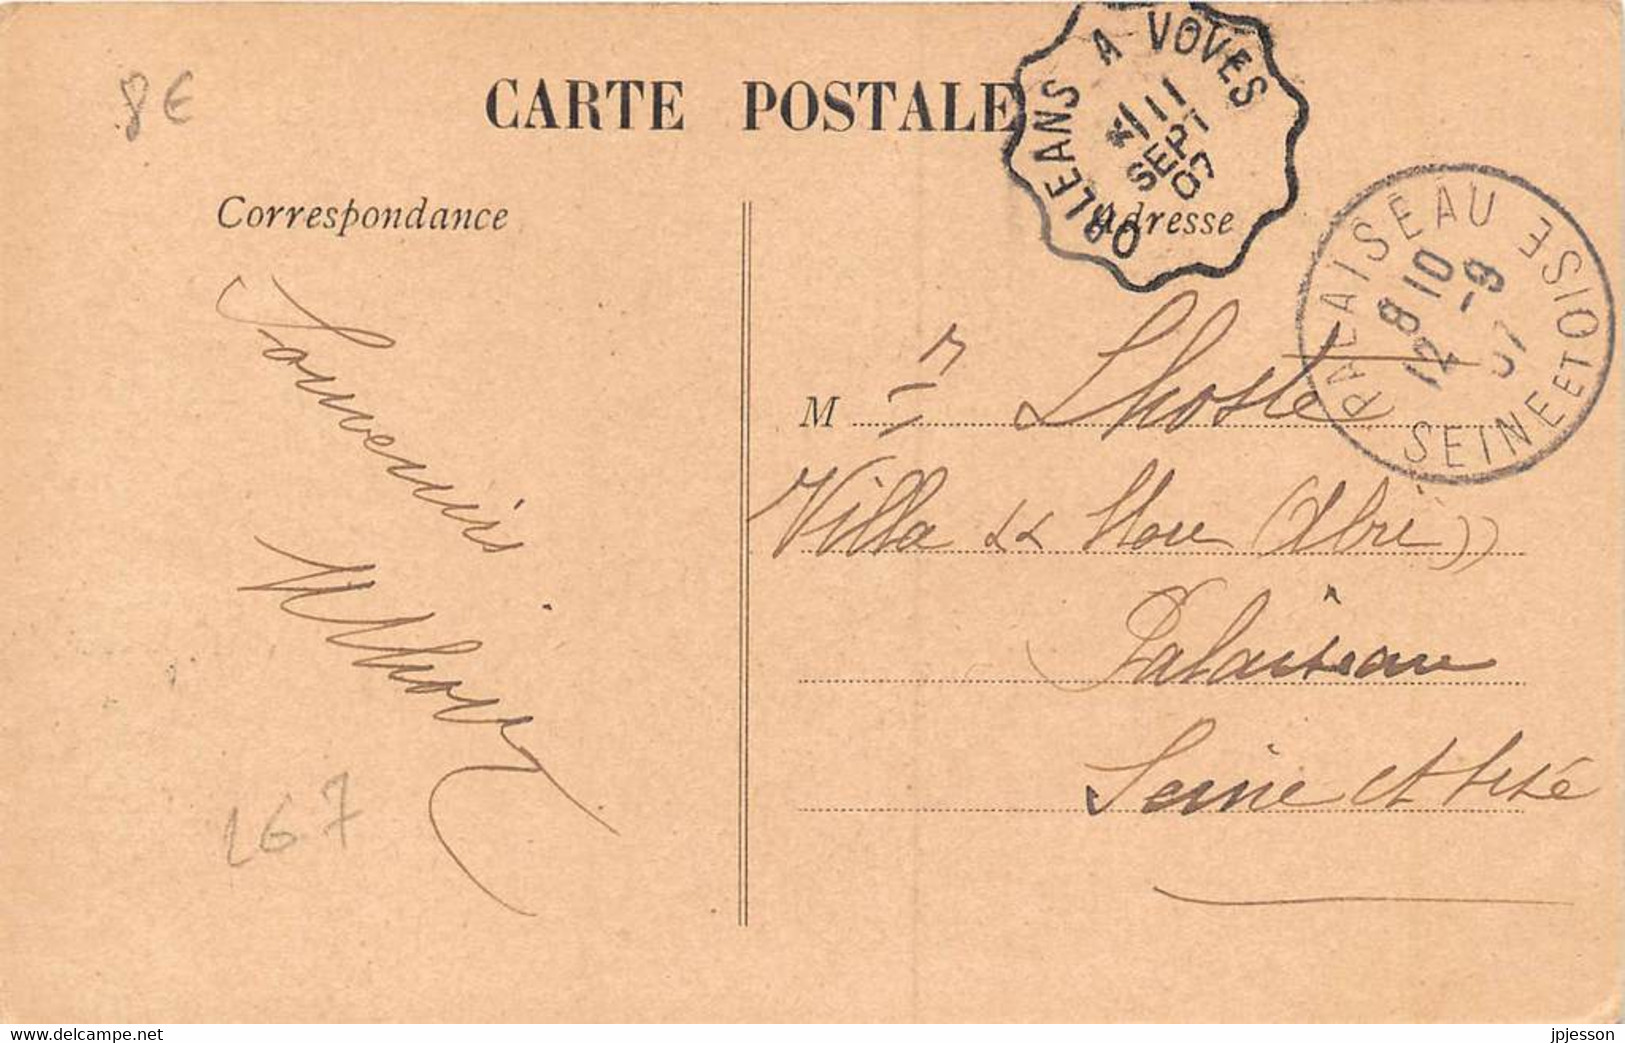 8€
CARTE POSTALE
ORLEANS A VOVES
11
SEPT
07
Correspondance
Adresse
PALAISEAU
SEINE ET OISE
8 10
12 -9
07
M r Lhoste
Villa « Mon Abri »
Palaiseau
Seine et Oise
Souvenirs
267
jpjesson